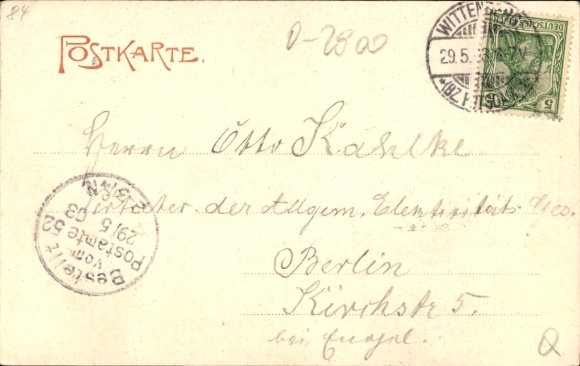 84
D-2800
POSTKARTE.
WITTENBERG
29.5.03 6-7 N
*(BZ. POTSDAM)*
DEUTSCHES REICH
5
Herrn Otto Kahlke
Vertreter der Allgem. Elektricitäts Ges.
Berlin
Kirchstr 5.
bei Engel.
Bestellt
vom
Postamte 52
29/5
03
N
Q